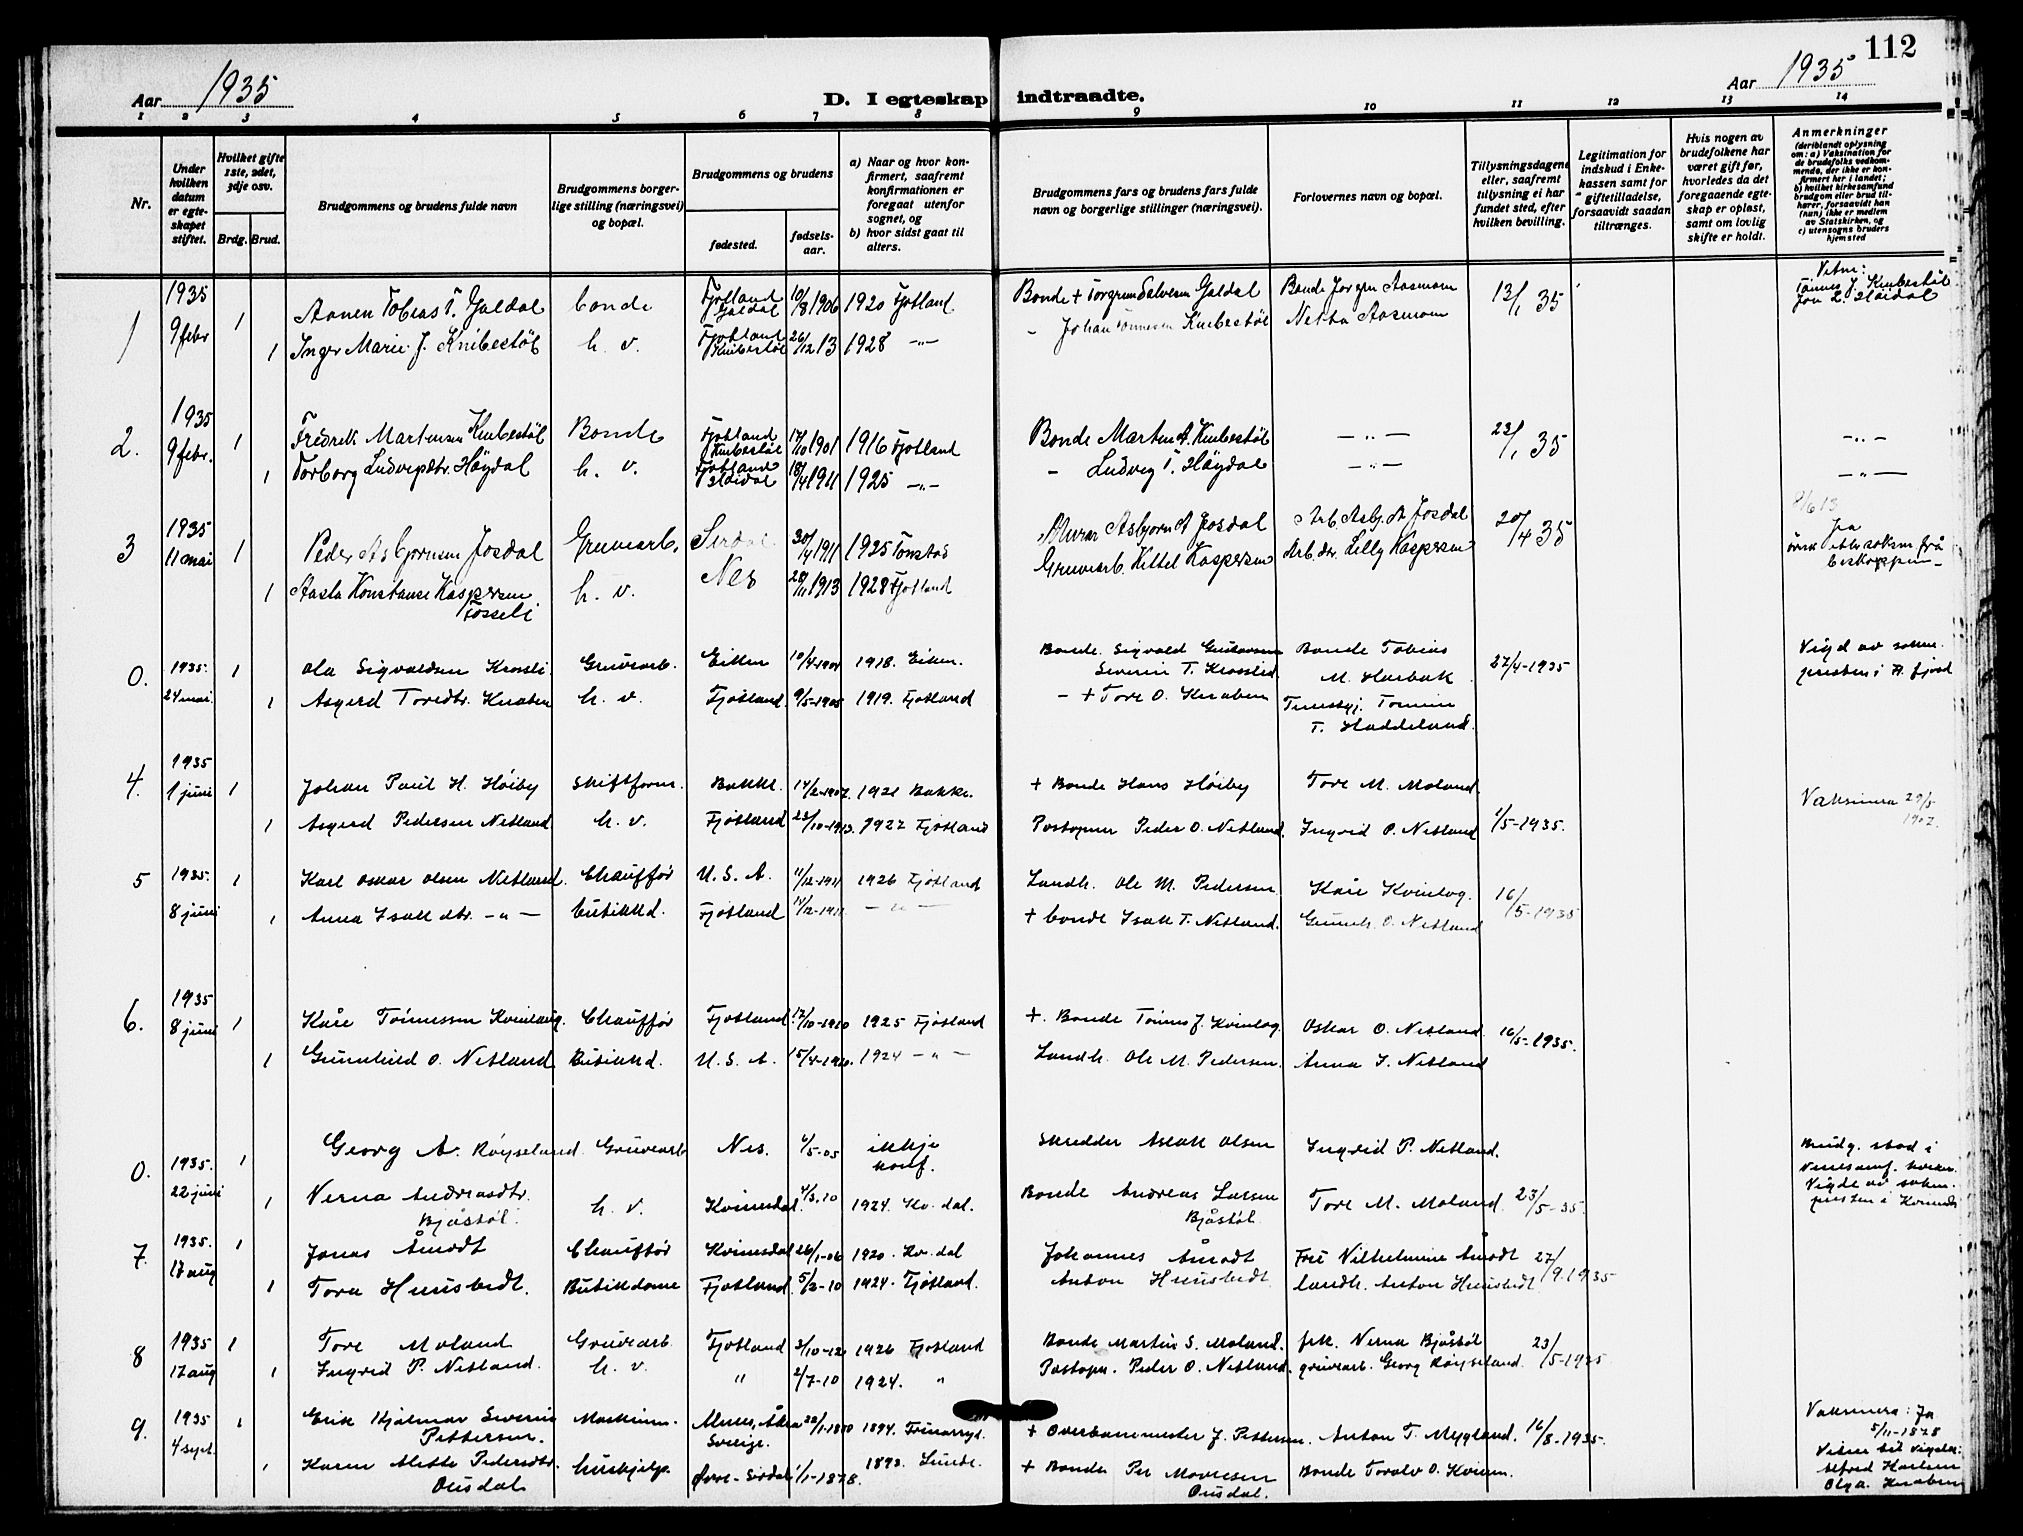 112
Aar 1935
D. I egteskap indtraadte.
Aar 1935
1 2 3 4 5 6 7 8 9 10 11 12 13 14
Nr.
Under hvilken datum er egteskapet stiftet.
Hvilket gifte 1ste, 2det, 3dje osv.
Brdg. Brud.
Brudgommens og brudens fulde navn
Brudgommens borgerlige stilling (næringsvei) og bopæl.
Brudgommens og brudens
fødested.
fødselsaar.
a) Naar og hvor konfirmert, saafremt konfirmationen er foregaat utenfor sognet, og
b) hvor sidst gaat til alters.
Brudgommens fars og brudens fars fulde navn og borgerlige stillinger (næringsvei).
Forlovernes navn og bopæl.
Tillysningsdagene eller, saafremt tillysning ei har fundet sted, efter hvilken bevilling.
Legitimation for indskud i Enkekassen samt for giftetilladelse, forsaavidt saadan tiltrænges.
Hvis nogen av brudefolkene har været gift før, hvorledes da det foregaaende egteskap er opløst, samt om lovlig skifte er holdt.
Anmerkninger
(deriblandt oplysning om: a) Vaksination for de brudefolks vedkommende, der ikke er konfirmert her i landet;
b) hvilket kirkesamfund brudgom eller brud tilhører, forsaavidt han (hun) ikke er medlem av Statskirken, og
c) utensogns bruders hjemsted
1 1935 9 febr 1 Aanen Tobias T. Galdal bonde Fjotland Galdal 10/8 1906 1920 Fjotland Bonde + Torgrim Salvesen Galdal Bonde Jørgen Aasmom 13/1 35 Vitne: Tønnes J. Knibestøl
1 Inger Marie J. Knibestøl h. v. Fjotland Knibestøl 26/12 13 1928 -"- - Johan Tønnesen Knibestøl Netta Aasmom Jon L. Høidal
2. 1935 9 febr. 1 Fredrik Martensen Knibestøl Bonde Fjotland Knibestøl 17/10 1901 1916 Fjotland Bonde Marten A. Knibestøl - " - 23/1 35 - " -
1 Torborg Ludvigsdtr. Høydal h. v. Fjotland Høidal 18/4 1911 1925 -"- - Ludvig T. Høydal - " - - " -
3 1935 11 mai 1 Peder Asbjørnsen Josdal Gruvearb. Sirdal 30/4 1911 1925 Tonstad Murar Asbjørn A Josdal Arb. Asbj. A. Josdal 20/4 35
1 Aasta Konstanse Kaspersen Fosseli h. v. Nes 20/11 1913 1928 Fjotland Gruvearb. Kittel Kaspersen Arb.der. Lilly Kaspersen
0. 1935. 24 mai. 1 Ola Sigvaldsen Krossli. Gruvearb. Eiken 10/4-1904 1918. Eiken. Bonde. Sigvald Gustavsen Severin T. Krosslid Bonde Tobias M. Harbak 27/4-1935 Vigd av soknepresten i A. fjord
1 Asgerd Toredtr. Knaben h. v. Fjotland. 9/5-1905 1919. Fjotland - + Tore O. Knaben T. Haddeland.
4. 1935 1 juni 1 Johan Paul H. Høiby Skiftform. Bakke. 14/2-1907. 1921 Bakke. + Bonde Hans Høiby Tore M. Moland Vaksinera 29/5 1907.
1 Asgerd Pedersen Netland h. v. Fjotland 23/10-1913. 1927 Fjotland Postopner Peder O. Netland. Ingrid P. Netland 1/5-1935.
5 1935. 8 juni 1 Karl Oskar Olsen Netland. Chauffør U. S. A. 11/12-1911 1926 Fjotland Landh. Ole M. Pedersen Kåre Kvinlog. 16/5-1935
1 Anna Isak dtr. - " - butikkd. Fjotland 14/12-1911. - " - + bonde Isak T. Netland. Gunnh. O. Netland
6. 1935 8 juni 1 Kåre Tønnessen Kvinlaug. Chauffør Fjotland. 12/10-1910 1925 Fjotland +. Bonde Tønnes J. Kvinlog Oskar O. Netland 16/5-1935.
1 Gunnhild O. Netland Butikkd. U. S. A. 15/4-1910. 1924 - " - Landh. Ole M. Pedersen. Anna I. Netland
0. 1935. 22 juni 1 Georg A. Røyseland Gruvearb Nes. 4/5-05 ikkje konf. Skredder Aslak Olsen Ingrid P. Netland. Brudg. stod i
1 Verna Andreasdtr. Bjåstøl. h. v. Kvinesdal. 4/3.10 1924. Kv. dal. Bonde Andreas Larsen Bjåstøl Tore M. Moland. 23/5-35. Vigde av soknepresten i Kvinesd
7. 1935. 17 aug 1 Jonas Åmodt Chauffør Kvinesdal 26/1-06 1920. Kv. dal Johannes Åmodt Fru Vilhelmine Åmodt 27/9.1935
1 Tora Hunsbedt. Butikkdame Fjotland. 5/2-10 1924. Fjotland. Anton Hunsbedt. landh. Anton Hunsbedt
8 1935 17 aug 1 Tore Moland Gruvearb. Fjotland 3/10-12 1926 Fjotland Bonde Martin S. Moland. frk. Verna Bjåstøl 23/5-1935
1 Ingrid P. Netland. h. v. " 2/7-10 1924. " Postopn. Peder O. Netland. gruvearb. Georg Røyseland.
9. 1935 4 sept. 1 Erik Hjalmar Severin Pettersen. Maskinm. Sverige. 22/1-1880 1894. + Overbanemester J. Pettersen. Anton T. Mygland. 16/8-1935. Vaksinera: Ja 5/11-1878
1 Karen Mette Pedersdtr. Ousdal Hushjelp. Øvre-Sirdal 1/1-1878. 1893. Lunde. + Bonde Per Monsesen Ousdal. Bonde Toralv O. Kvinen. Vitner til vigsla: Alfred Haslem Olga Knaben